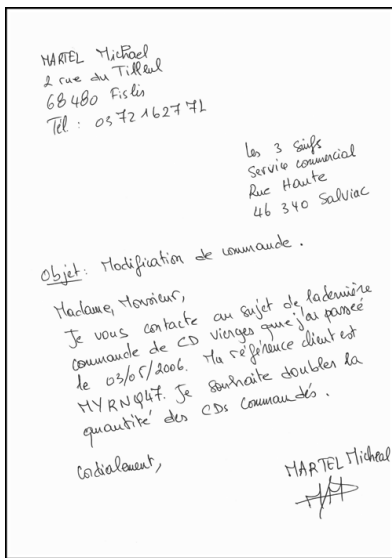 MARTEL Michael
2 rue du Tilleul
68480 Fislis
Tél : 03 72 16 27 71
Les 3 Suifs
Service commercial
Rue Haute
46 340 Salviac
Objet : Modification de commande.
Madame, Monsieur,
Je vous contacte au sujet de la dernière
commande de CD vierges que j'ai passée
le 03/05/2006. Ma référence client est
MYRNQ47. Je souhaite doubler la
quantité des CDs commandés.
Cordialement,
MARTEL Micheal